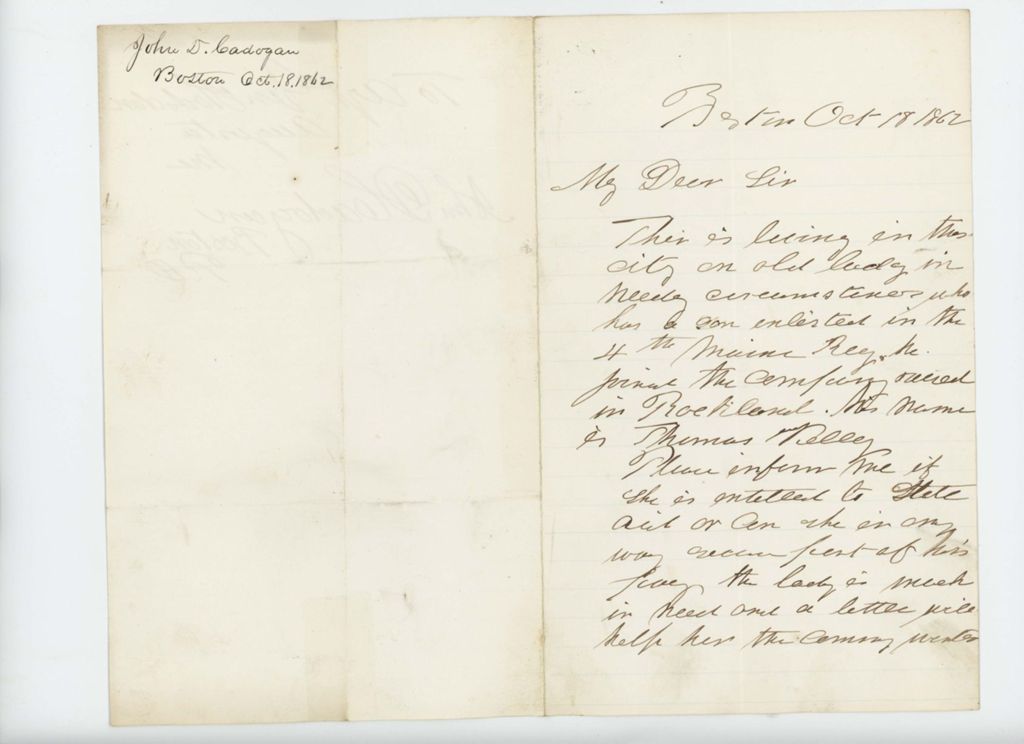 John D. Cadogan
Boston Oct. 18, 1862
Boston Oct 18 1862
My Dear Sir
Ther is living in this
city an old lady in
needy circumstances who
has a son enlisted in the
4th Maine Reg. he
joined the company raised
in Rockland. his name
is Thomas Kelley
Please inform me if
she is entitled to State
aid or can she in any
way secure part of his
pay the lady is much
in need and a little will
help her the coming winter